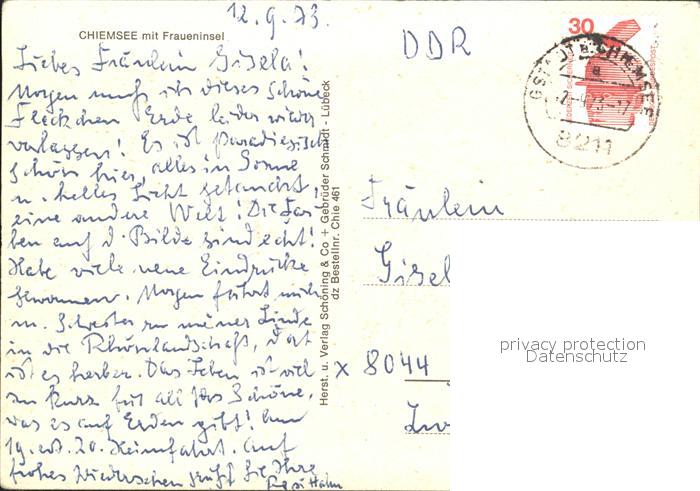 12.9.73.
CHIEMSEE mit Fraueninsel
Liebes Fräulein Gisela!
Morgen muß ich dieses schöne
Fleckchen Erde leider wieder
verlassen! Es ist paradiesisch
schön hier, alles in Sonne
u. helles Licht getaucht,
eine andere Welt! Die Far-
ben auf d. Bilde sind echt!
Habe viele neue Eindrücke
gewonnen. Morgen fährt mich
m. Schwester zu meiner Linde
in die Rhönlandschaft, dort
ist es herber. Das Leben ist viel
zu kurz für all das Schöne,
was es auf Erden gibt! Am
19. od. 20. Heimfahrt. Auf
frohes Wiedersehen grüßt Sie Ihre
Hahn
Herst. u. Verlag Schöning & Co + Gebrüder Schmidt - Lübeck
dz Bestellnr. Chie 461
DDR
30
GSTADT a. CHIEMSEE
a
8211
Fräulein
Gisel
x 8044
privacy protection
Datenschutz